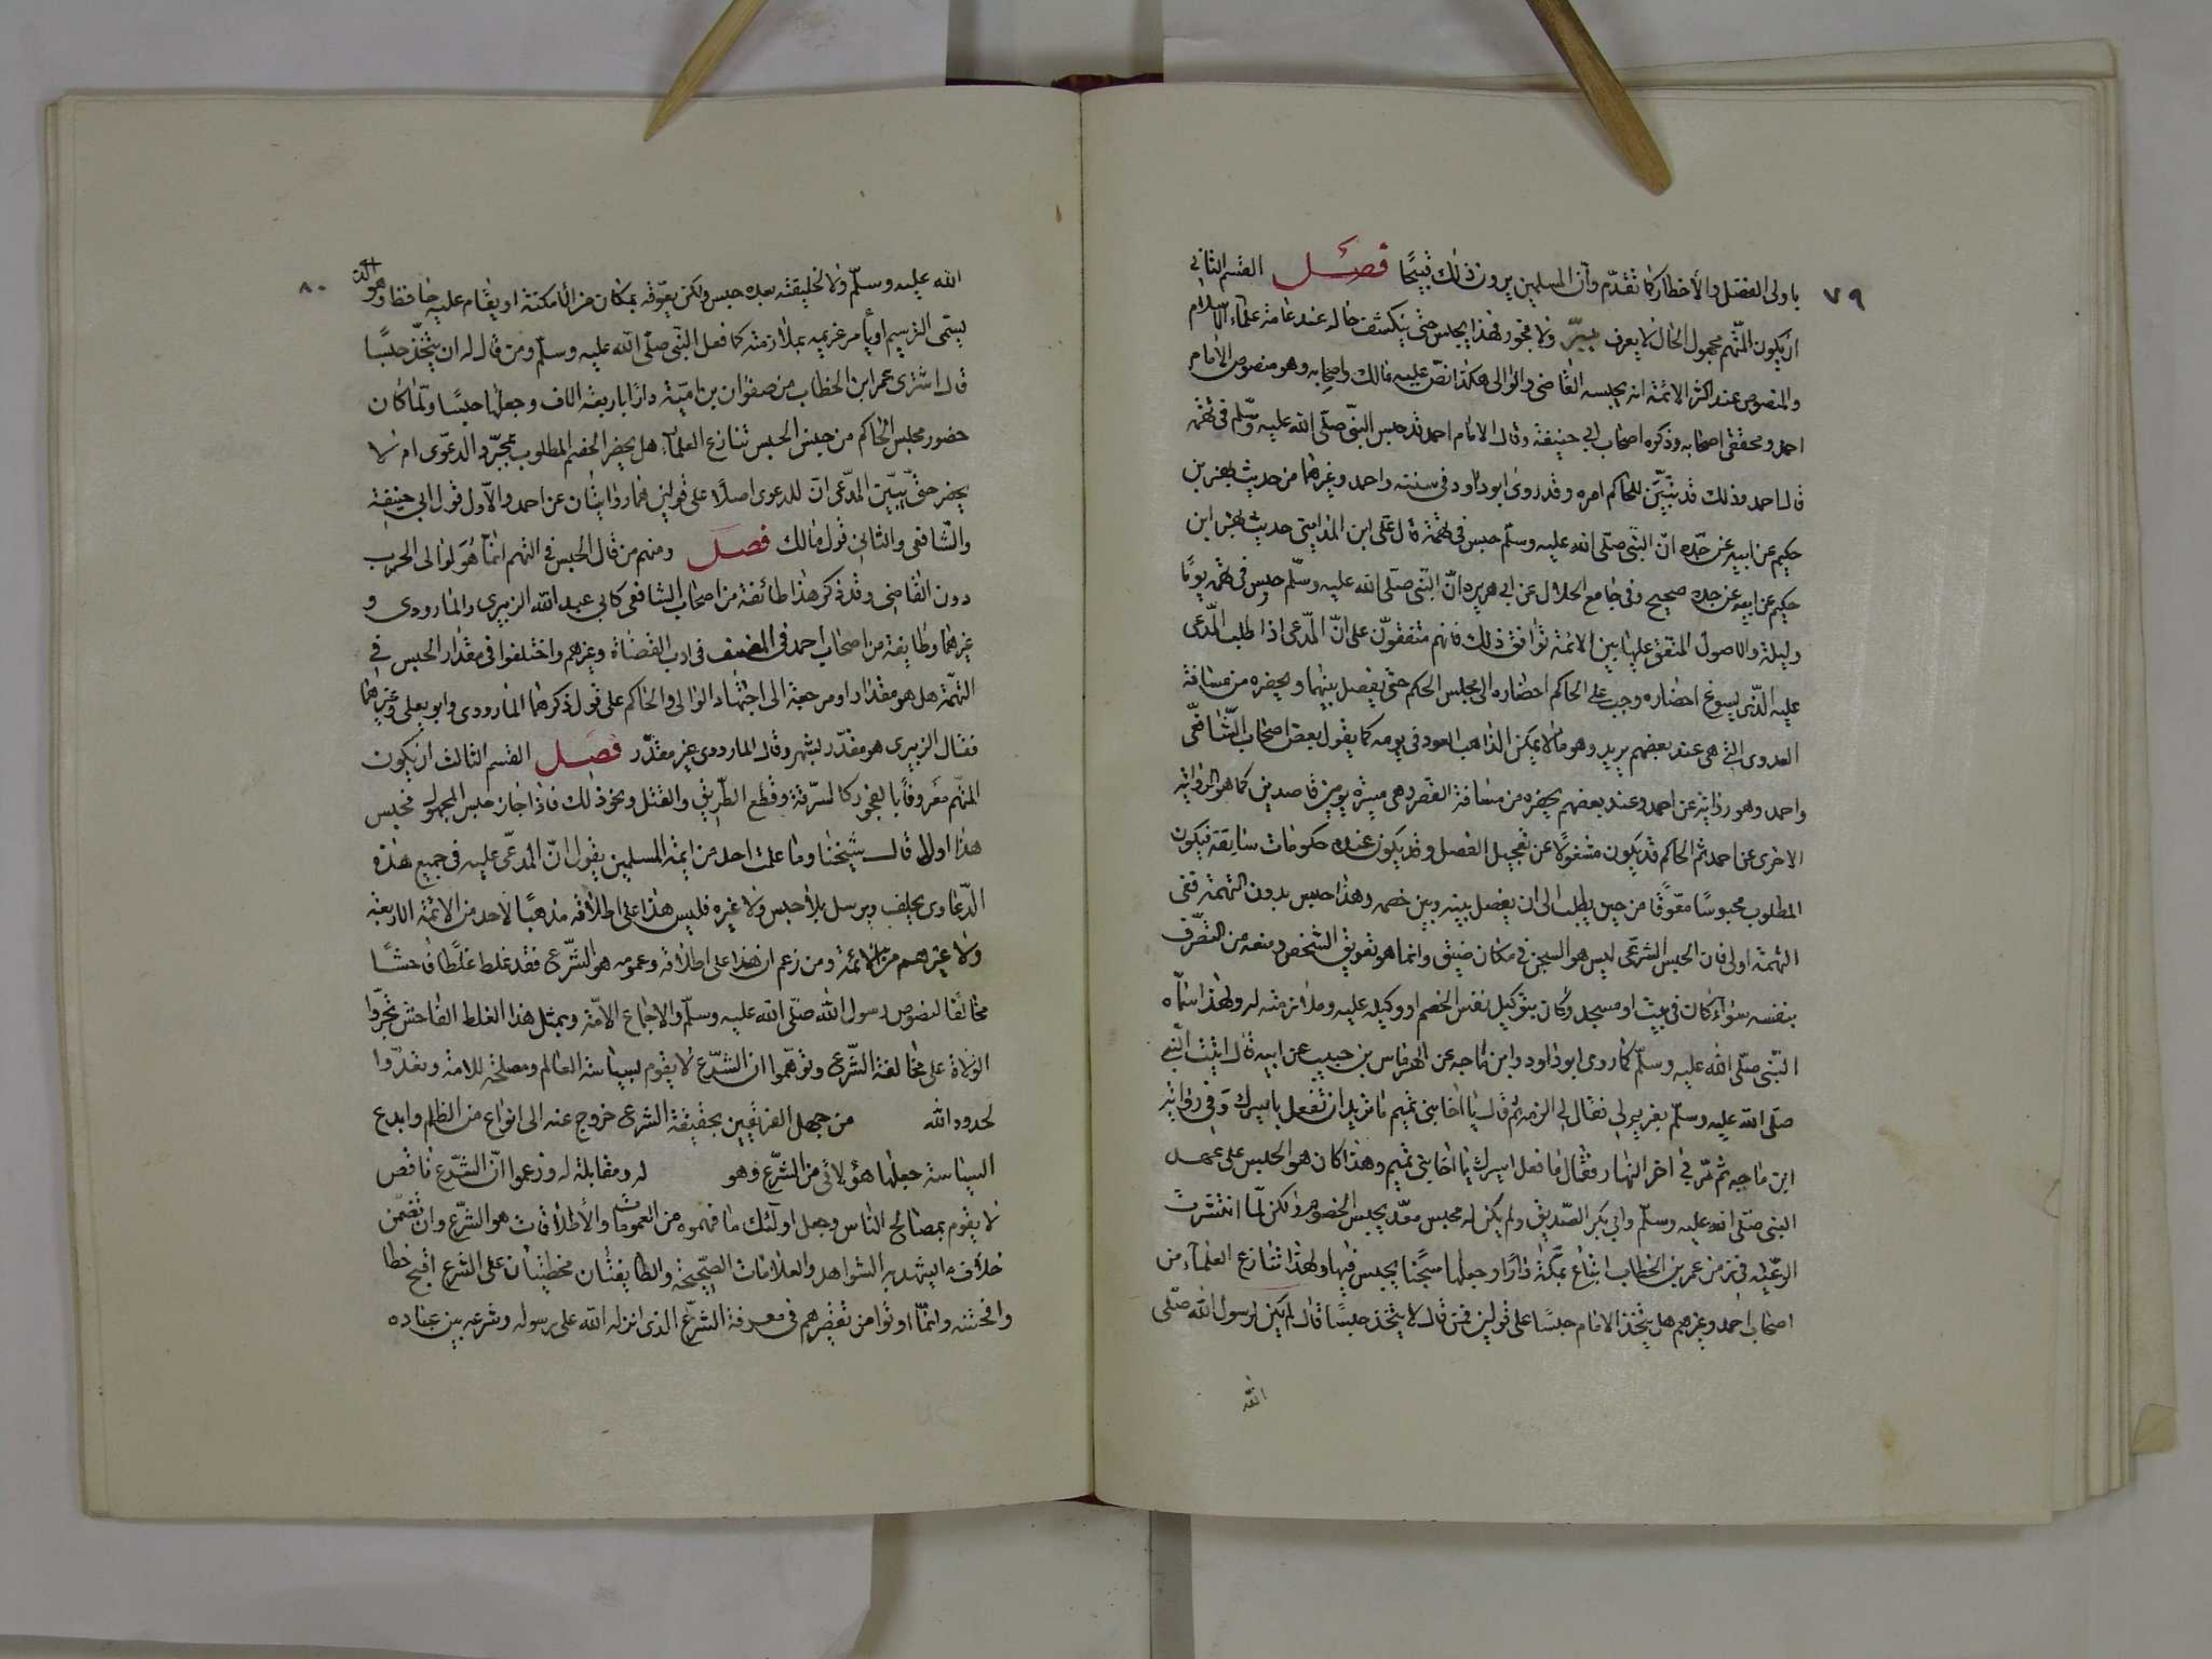 ٧٩
باولى الفضل والأخطار كما تقدّم وآن المسلمين يرون ذلك قبيحًا فصل القسم الثاني
ان يكون المتّهم مجهول الحال لا يعرف ببرّ ولا فجور فهذا يحبس حتى ينكشف حاله عند عامة علماء الاسلام
والمنصوص عند اكثر الائمة انه يحبسه القاضى والوالى هكذا نصّ عليه مالك واصحابه وهو منصوص الامام
احمد ومحققى اصحابه وذكره اصحاب ابى حنيفة وقال الامام احمد قد حبس النبى صلّى الله عليه وسلّم فى تهمة
قال احمد وذلك قد يتبيّن للحاكم امره وقد روى ابو داود فى سننه واحمد وغيرهما من حديث بهز بن
حكيم عن ابيه عن جدّه انّ النبى صلّى الله عليه وسلّم حبس فى تهمة قال على ابن المدينى حديث بهز ابن
حكيم عن ابيه عن جده صحيح وفى جامع الخلال عن ابى هريره انّ النبى صلّى الله عليه وسلّم حبس فى تهمة يومًا
وليلة والاصول المتفق عليها بين الائمة توافق ذلك فانهم متفقون على انّ المدّعى اذا طلب المدّعى
عليه الذّى يسوغ احضاره وجب على الحاكم احضاره الى مجلس الحكم حتى يفصل بينهما ويحضره من مسافة
العدوى التى هى عند بعضهم بريد وهو ما لا يمكن الذاهب العود فى يومه كما يقول بعض اصحاب الشّافعّى
واحمد وهو رواية عن احمد وعند بعضهم يحضره من مسافة القصر وهى ميسرة يومين قاصدين كما هو الرواية
الاخرى عن احمد ثم الحاكم قد يكون مشغولًا عن تعجيل الفصل وقد يكون عنده حكومات سابقة فيكون
المطلوب محبوسًا معوّقًا من حين يطلب الى ان يفصل بينه وبين خصمه وهذا حبس بدون التهمة ففى
التهمة اولى فان الحبس الشرعّى ليس هو السجن فى مكان ضيّق وانما هو تعويق الشخص ومنعه من التصرّف
بنفسه سواء كان فى بيت او مسجد وكان بتوكيل نفس الخصم او وكيله عليه وملازمته له ولهذا اسّماه
النبّى صلّى الله عليه وسلّم كما روى ابو داود وابن ماجه عن الهرماس بن حبيب عن ابيه قال اتيت النّبى
صلّى الله عليه وسلّم بغريم لى فقال لى الزمه ثم قال يا اخا بنى تميم ما تريد ان تفعل باسيرك وفى رواية
ابن ماجه ثم مّر فى اخر النهار فقال ما فعل اسيرك يا اخا بنى تميم وهذا كان هو الحبس على عهد
النبى صلّى الله عليه وسلّم وابى بكر الصّديق ولم يكن له محبس معدّ يحبس الخصوم ولكن لمّا انتشرت
الرعّية فى زمن عمر بن الخطاب ابتاع بمّكة دارًا وجعلها سجنًا يحبس فيها ولهذا تنازع العلماء من
اصحاب احمد وغيرهم هل يتخذ الامام حبسًا على قولين فمن قال لا يتخذ حبسًا قال لم يكن لرسول الله صلّى
الله
٨٠
الله عليه وسلّم ولا لخليفته بعده حبس ولكن يعوّقه بمكان من الأمكنة او يقام عليه حافظ وهو الذى
يسمى الترسيم او يأمر غريمه بملازمته كما فعل النّبى صلّى الله عليه وسلّم ومن قال له ان يتخّذ حبسًا
قال اشترى عمر ابن الخطاب من صفوان بن اميّة دارًا باربعة الاف وجعلها حبسًا ولمّا كان
حضور مجلس الحاكم من جنس الحبس تنازع العلماء هل يحضر الخصم المطلوب بمجرّد الدعّوى ام لا
يحضر حتّى يبيّن المدّعى انّ للدعوى اصلًا على قولين هما روايتان عن احمد والأول قول ابى حنيفة
والشّافعى والثانى قول مالك فصل ومنهم من قال الحبس فى التهم انمّا هُوَ لوالى الحرب
دون القاضى وقد ذكر هذا طائفة من اصحاب الشافعى كابى عبد الله الزبيرى والماروردى و
غيرهما وطايفة من اصحاب احمد فى المصنف فى ادب القضاة وغيرهم واختلفوا فى مقدار الحبس فى
التهمّة هل هو مقدّر او مرجعة الى اجتهاد الوالى والحاكم على قول ذكرهما الماروردى وابو يعلى وغيرهما
فقال الزبيرى هو مقدّر بشهر وقال الماروردى غير مقدّر فصل القسم الثالث ان يكون
المتهّم معروفًا بالفجور كالسرّقة وقطع الطّريق والقتل ونحو ذلك فاذا جاز حبس المجهول فحبس
هذا اولى قال شيخنا وما علمت احد من ايمة المسلمين يقول انّ المدعّى عليه فى جميع هذه
الدّعاوى يحلف ويرسل بلا حبس ولا غيره فليس هذا على اطلاقه مذهبًا لاحد من الائمّة الاربعة
ولا غيرهم من الائمّة ومن زعم ان هذا على اطلاقه وعمومه هو الشّرعى فقد غلط غلطًا فاحشًا
مخالفا لنصوص رسول الله صلّى الله عليه وسلّم والاجماع الامّة وبمثل هذا الغلط الفاحش تجرّوا
الولاة على مخالفة الشّرعى وتوهّموا ان الشّرع لا يقوم بسياسة العالم ومصلحة للامة وتعدّوا
لحدود الله من جهل الفريقين بحقيقة الشرعى خروج عنه الى انواع من الظلم وابدع
السياسة جعلها هؤلائى من الشّرع وهو له ومقابلة له وزعموا انّ الشّرع ناقص
لا يقوم بمصالح الناس وجعل اولئك ما فهموه من العمومات والأطلاقات هو الشّرع وان تضمّن
خلاف ما ليشهد به الشواهد والعلامات الصّحيحة والطايفتان مخطئتان على الشرع اقبح خطا
وافحشه وانمّا اوتوا من تقصيرهم فى معرفة الشرّع الذى انزله الله على رسوله وشرعه بين عباده